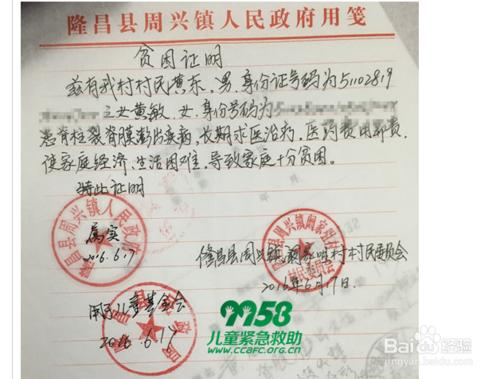 隆昌县周兴镇人民政府用笺
贫困证明
兹有我村村民黄东，男，身份证号码为51102819
之女黄敏，女，身份号码为5
患脊柱裂脊膜膨出疾病，长期求医治疗，医药费用昂贵，
使家庭经济、生活困难，导致家庭十分贫困。
特此证明
隆昌县周兴镇人民政府
属实
2016.6.17
隆昌县周兴镇 村村民委员会
村民委员会
2016年6月17日
用于儿童基金会
2016.6.17
9958
儿童紧急救助
www.ccafc.org.cn
Baidu经验
jingyan.baidu.com